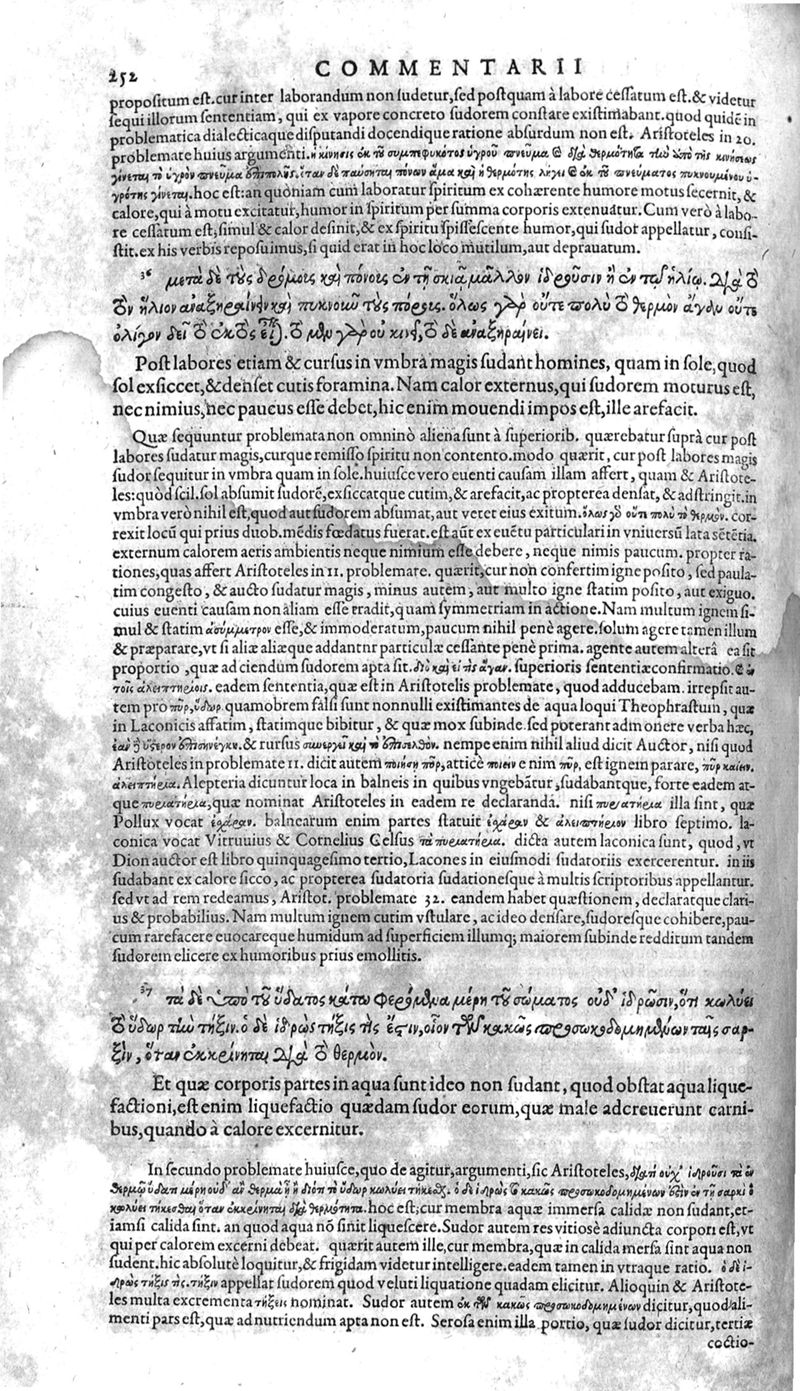 252 COMMENTARII
propositum est. cur inter laborandum non sudetur, sed postquam à labore cessatum est. & videtur
sequi illorum sententiam, qui ex vapore concreto sudorem constare existimabant. quod quidẽ in
problematica dialecticaque disputandi docendique ratione absurdum non est. Aristoteles in 20.
problemate huius argumenti. ἡ κίνησις ἐκ τοῦ συμπεφυκότος ὑγροῦ πνεῦμα
γίνεται τὸ ὑγρὸν πνεῦμα ὅταν δὲ παύσηται πόνων ἅμα καὶ ἡ θερμότης λήγει ἐκ τοῦ πνεύματος πυκνουμένου ὑ-
γρότης γίνεται. hoc est: an quoniam cum laboratur spiritum ex cohærente humore motus secernit, &
calore, qui à motu excitatur, humor in spiritum per summa corporis extenuatur. Cum verò à labo-
re cessatum est, simul & calor desinit, & ex spiritu spissescente humor, qui sudor appellatur, consi-
stit. ex his verbis reposuimus, si quid erat in hoc loco mutilum, aut deprauatum.
36 μετὰ δὲ τοὺς δρόμους καὶ πόνους ἐν τῇ σκιᾷ μᾶλλον ἱδροῦσιν ἢ ἐν τῷ ἡλίῳ. διὰ τὸ
τὸν ἥλιον ἀναξηραίνειν καὶ πυκνοῦν τοὺς πόρους. ὅλως γὰρ οὔτε πολὺ τὸ θερμὸν ἄγαν οὔτε
ὀλίγον δεῖ τὸ ἐκτὸς εἶναι. τὸ μὲν γὰρ οὐ κινεῖ, τὸ δὲ ἀναξηραίνει.
Post labores etiam & cursus in vmbra magis sudant homines, quam in sole, quod
sol exsiccet, & denset cutis foramina. Nam calor externus, qui sudorem moturus est,
nec nimius, nec paucus esse debet, hic enim mouendi impos est, ille arefacit.
Quæ sequuntur problemata non omninò aliena sunt à superiorib. quærebatur suprà cur post
labores sudatur magis, curque remisso spiritu non contento. modo quærit, cur post labores magis
sudor sequitur in vmbra quam in sole. huiusce vero euenti causam illam affert, quam & Aristote-
les: quòd scil. sol absumit sudorẽ, exsiccatque cutim, & arefacit, ac propterea densat, & adstringit. in
vmbra verò nihil est, quod aut sudorem absumat, aut vetet eius exitum. ὅλως γὸ οὔτι πολὺ τὸ θερμὸν. cor-
rexit locũ qui prius duob. mẽdis fœdatus fuerat. est aũt ex euẽtu particulari in vniuersũ lata sẽtẽtia.
externum calorem aeris ambientis neque nimium esse debere, neque nimis paucum. propter ra-
tiones, quas affert Aristoteles in 11. problemate. quærit, cur non confertim igne posito, sed paula-
tim congesto, & aucto sudatur magis, minus autem, aut multo igne statim posito, aut exiguo.
cuius euenti causam non aliam esse tradit, quam symmetriam in actione. Nam multum ignem si-
mul & statim ἀσύμμετρον esse, & immoderatum, paucum nihil penè agere. solum agere tamen illum
& præparare, vt si aliæ aliæque addantnr particulæ cessante penè prima. agente autem alterâ ea sit
proportio, quæ ad ciendum sudorem apta sit. superioris sententiæ confirmatio.
τοῖς ἀλειπτηρίοις. eadem sententia, quæ est in Aristotelis problemate, quod adducebam. irrepsit au-
tem pro πῦρ, ὕδωρ. quamobrem falsi sunt nonnulli existimantes de aqua loqui Theophrastum, quæ
in Laconicis affatim, statimque bibitur, & quæ mox subinde. sed poterant admonere verba hæc,
& rursus συνεργεῖ καὶ τὸ nempe enim nihil aliud dicit Auctor, nisi quod
Aristoteles in problemate 11. dicit autem ποιήσῃ πῦρ, atticè ποιεῖν enim πῦρ, est ignem parare, πῦρ καίειν.
ἀλειπτήρια. Alepteria dicuntur loca in balneis in quibus vngebãtur, sudabantque, forte eadem at-
que πυριατήρια, quæ nominat Aristoteles in eadem re declarandâ. nisi πυριατήρια illa sint, quæ
Pollux vocat ἐσχάραν. balnearum enim partes statuit ἐσχάραν & ἀλειπτήριον libro septimo. la-
conica vocat Vitruuius & Cornelius Celsus τὰ πυριατήρια. dicta autem laconica sunt, quod, vt
Dion auctor est libro quinquagesimo tertio, Lacones in eiusmodi sudatoriis exercerentur. in iis
sudabant ex calore sicco, ac propterea sudatoria sudationesque à multis scriptoribus appellantur.
sed vt ad rem redeamus, Aristot. problemate 32. eandem habet quæstionem, declaratque clari-
us & probabilius. Nam multum ignem cutim vstulare, ac ideo densare, sudoresque cohibere, pau-
cum rarefacere euocareque humidum ad superficiem illumq; maiorem subinde redditum tandem
sudorem elicere ex humoribus prius emollitis.
37 τὰ δὲ ὑπὸ τοῦ ὕδατος κάτω φερόμενα μέρη τοῦ σώματος οὐδ' ἱδρῶσιν, ὅτι κωλύει
τὸ ὕδωρ τὴν τῆξιν. ὁ δὲ ἱδρὼς τῆξίς τίς ἐστιν, οἷον τῶν κακῶς προσωκοδομημένων ταῖς σαρ-
ξὶν, ὅταν ἐκκρίνηται διὰ τὸ θερμόν.
Et quæ corporis partes in aqua sunt ideo non sudant, quod obstat aqua lique-
factioni, est enim liquefactio quædam sudor eorum, quæ male adcreuerunt carni-
bus, quando à calore excernitur.
In secundo problemate huiusce, quo de agitur, argumenti, sic Aristoteles, διὰ τί οὐχ' ἱδροῦσι τὰ ἐν
θερμῷ ὕδατι μέρη οὐδ' ἂν θερμὰ ᾖ ἢ διότι τὸ ὕδωρ κωλύει τήκεσθαι. ὁ δὲ ἱδρὼς τὸ κακῶς προσωκοδομημένον ἐν τῇ σαρκὶ
ὅταν ἐκκρίνηται διὰ θερμότητα. hoc est; cur membra aquæ immersa calidæ non sudant, et-
iamsi calida sint. an quod aqua nõ sinit liquescere. Sudor autem res vitiosè adiuncta corpori est, vt
qui per calorem excerni debeat. quærit autem ille, cur membra, quæ in calida mersa sint aqua non
sudent. hic absolutè loquitur, & frigidam videtur intelligere. eadem tamen in vtraque ratio. ὁ δὲ ἱ-
δρὼς τῆξις τις. τῆξιν appellat sudorem quod veluti liquatione quadam elicitur. Alioquin & Aristote-
les multa excrementa τήξεις nominat. Sudor autem ἐκ τῶν κακῶς προσωκοδομημένων dicitur, quod ali-
menti pars est, quæ ad nutriendum apta non est. Serosa enim illa portio, quæ sudor dicitur, tertiæ
coctio-